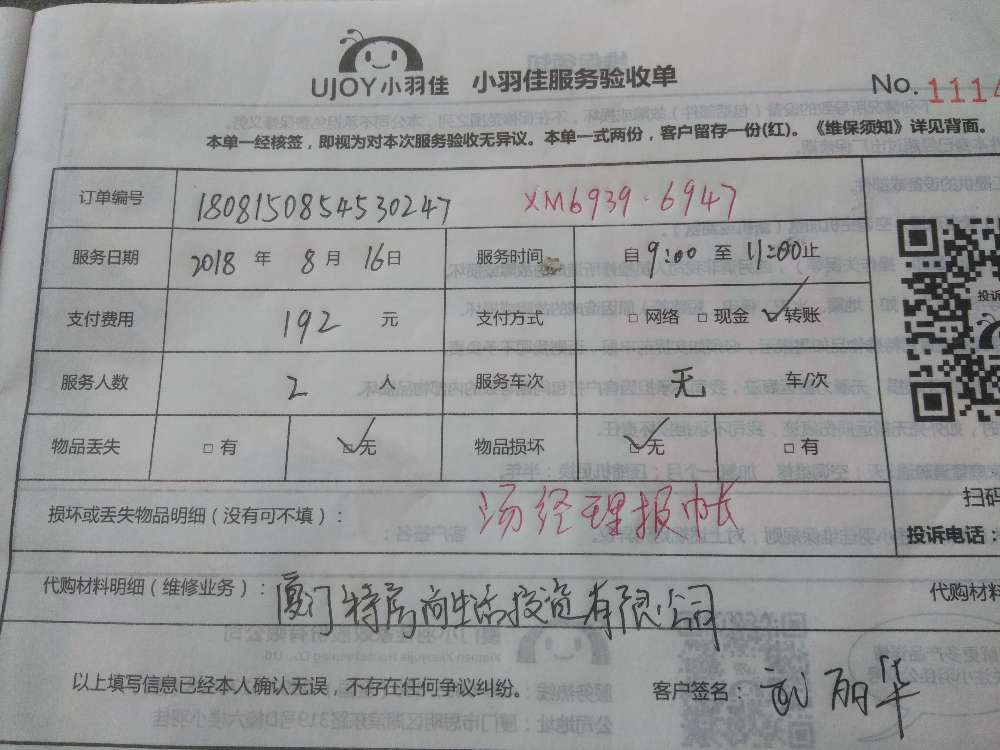 UJOY小羽佳 小羽佳服务验收单
No. 1114
本单一经核签，即视为对本次服务验收无异议。本单一式两份，客户留存一份(红)。《维保须知》详见背面。
订单编号 1808150854530247 XM6939.6947
服务日期 2018 年 8 月 16 日 服务时间 自 9:00 至 11:00 止
支付费用 192 元 支付方式 □ 网络 □ 现金 ☑ 转账
投诉
服务人数 2 人 服务车次 无 车/次
物品丢失 □ 有 ☑ 无 物品损坏 ☑ 无 □ 有
扫码
损坏或丢失物品明细（没有可不填）： 汤经理报帐
投诉电话：
代购材料明细（维修业务）： 厦门特房商生活投资有限公司
代购材料
以上填写信息已经本人确认无误，不存在任何争议纠纷。 客户签名： 丽华